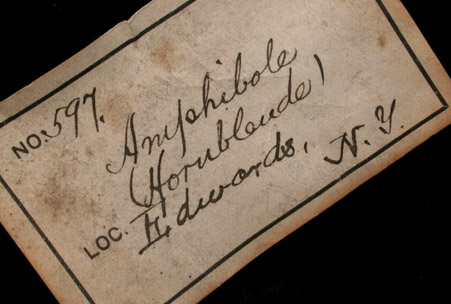 NO. 597.
Amphibole
(Hornblende)
LOC. Edwards, N. Y.